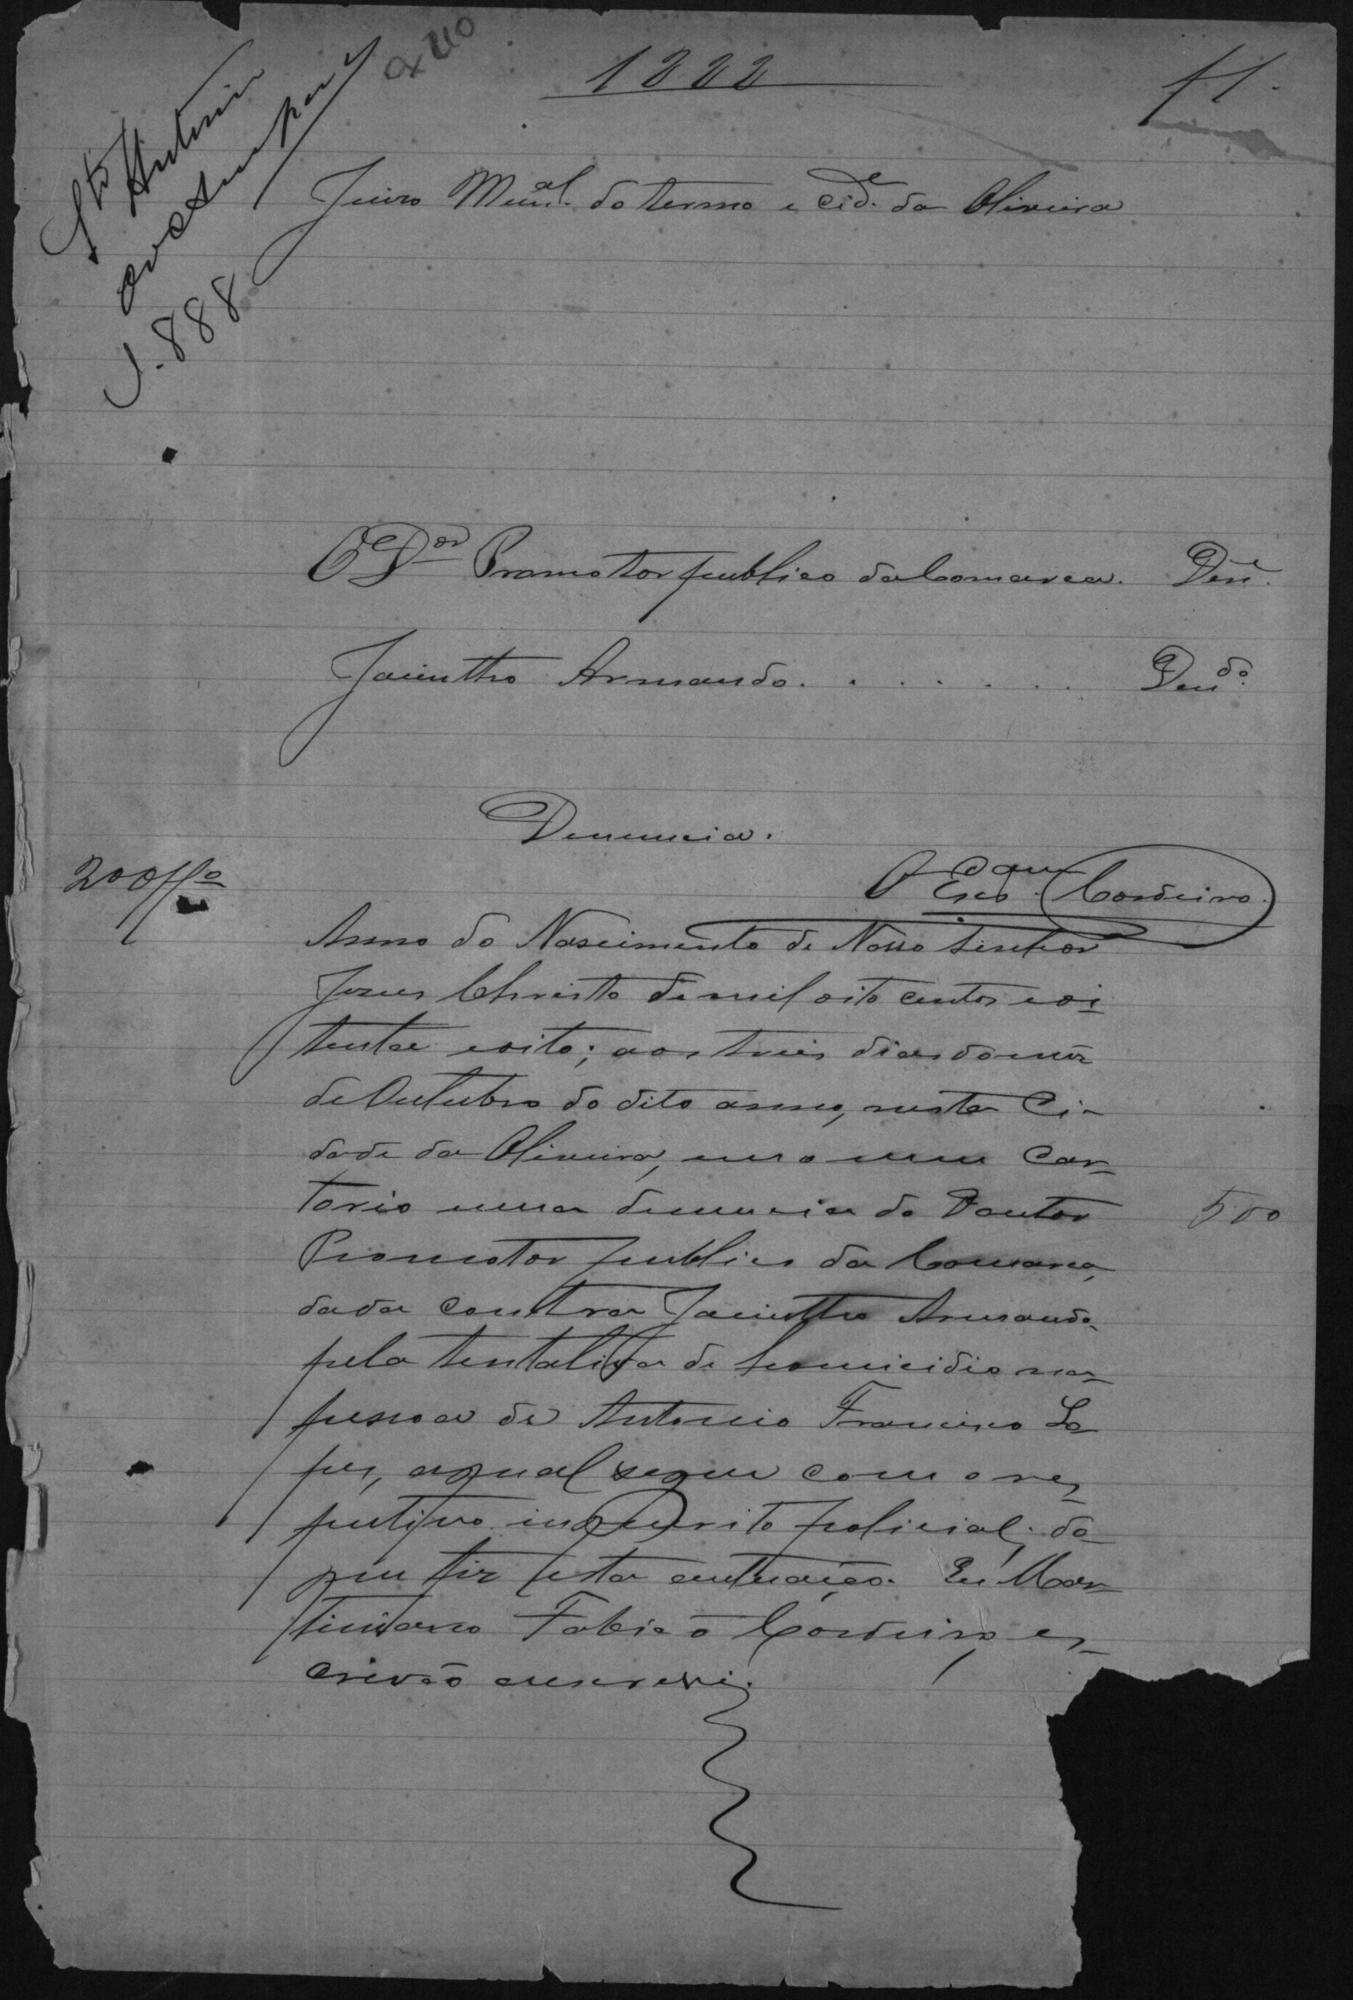 1888
f 1.
Sto Antonio
do Amparo
1.888
Juizo Mun.al do termo e cid.e da Oliveira
O Dor Promotor publico da Comarca. Den.e
Jacintho Armando. . . . . . . Den.do
Denuncia.
200
O Escam. Cordeiro.
Anno do Nascimento de Nosso Senhor
Jesus Christo de mil oito centos e oi
tenta e oito; aos tres dias do mez
de Outubro do dito anno, nesta Ci-
dade da Oliveira, em o meu Car-
torio uma denuncia do Doutor
500
Promotor publico da Comarca,
dada contra Jacintho Armando
pela tentativa de homicidio na
pessoa de Antonio Francisco Lo
pes, a qual segue com o res-
petivo inquerito policial; do
que fiz esta autuação. Eu Mar-
tiniano Fabião Cordeiro, es-
crivão escrevi.